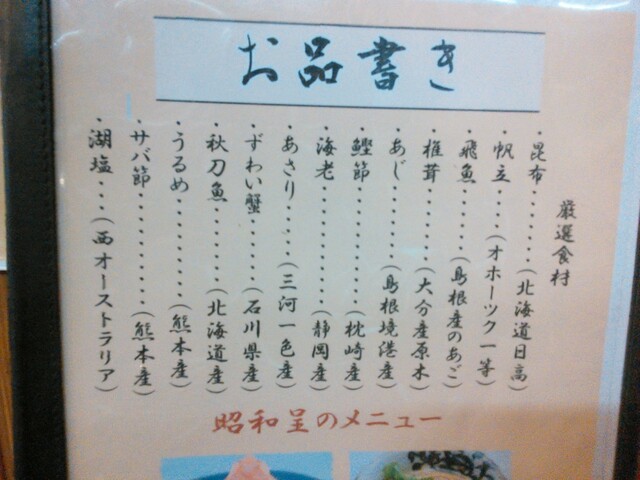 お品書き
厳選食材
・昆布・・・・・・・(北海道日高)
・帆立・・・・(オホーツク一等)
・飛魚・・・・・・(島根産のあご)
・椎茸・・・・・・(大分産原木)
・あじ・・・・・・(島根境港産)
・鰹節・・・・・・・・・(枕崎産)
・海老・・・・・・・・・(静岡産)
・あさり・・・・(三河一色産)
・ずわい蟹・・・・(石川県産)
・秋刀魚・・・・・・(北海道産)
・うるめ・・・・・・・・(熊本産)
・サバ節・・・・・・・・(熊本産)
・湖塩・・・(西オーストラリア)
昭和呈のメニュー